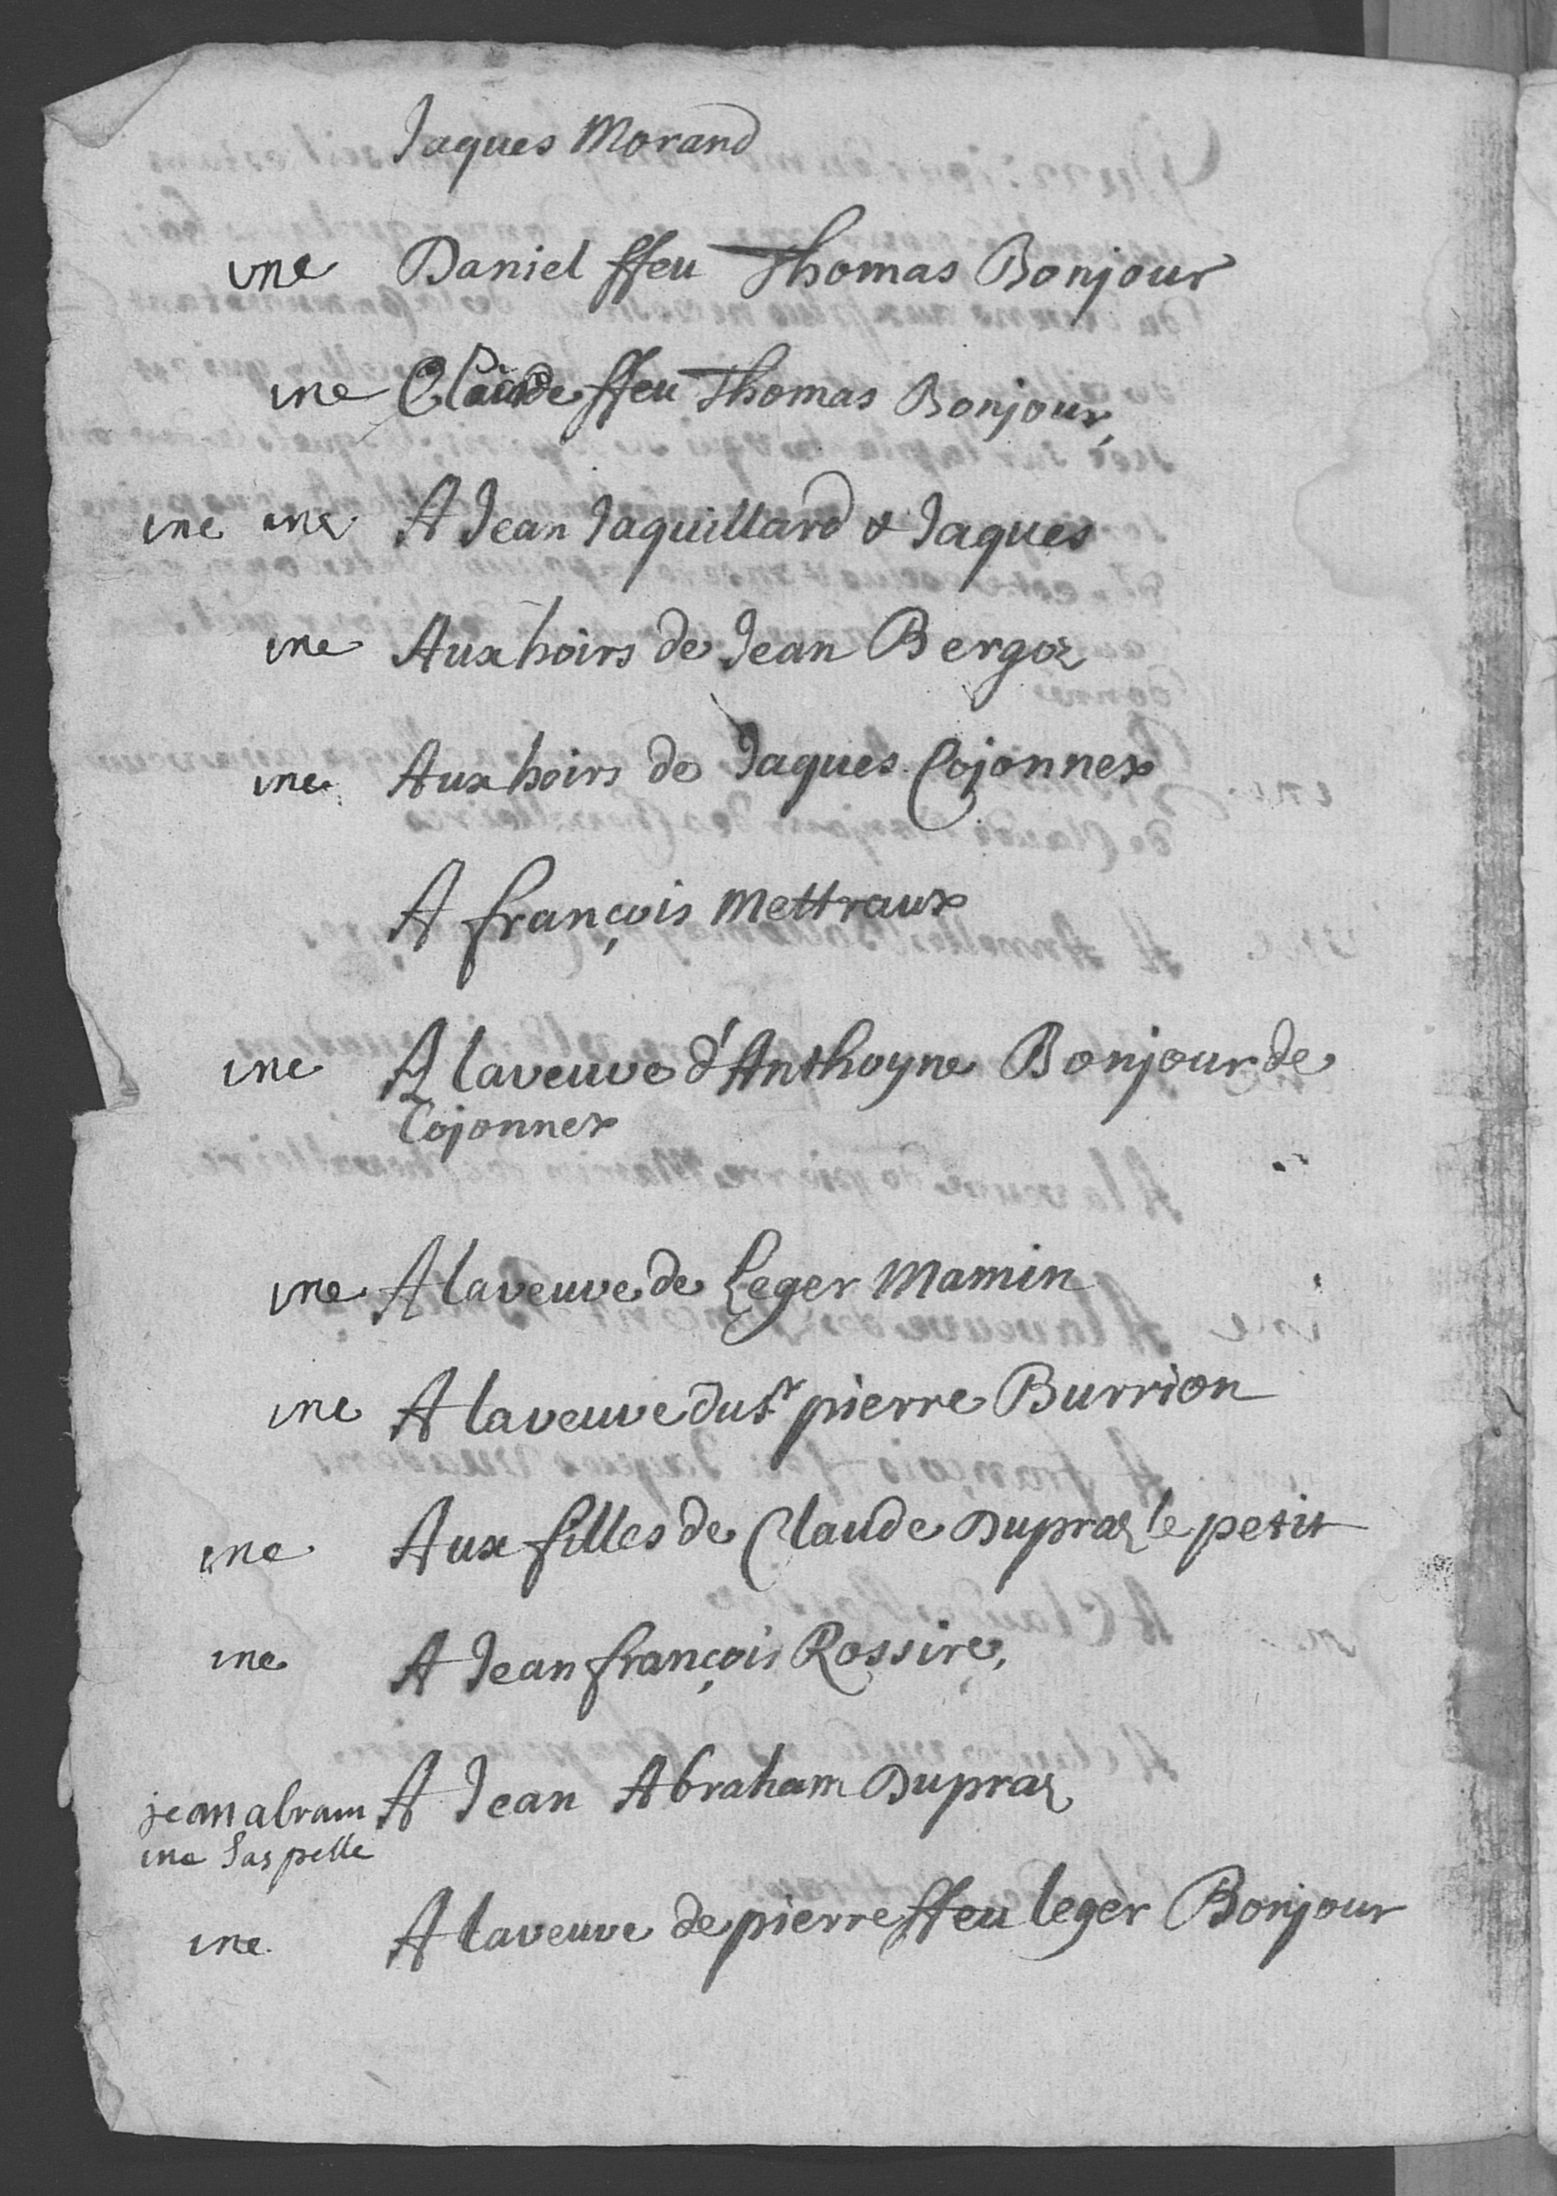 Jaques Morand
vne Daniel ffeu Thomas Bonjour
vne Claude ffeu Thomas Bonjour,
vne vne A Jean Jaquillard & Jaques
vne Aux hoirs de Jean Bergoz
vne Aux hoirs de Jaques Cojonnex
A françois Mettraux
vne A la veuve d'Anthoyne Bonjour de
Cojonnex
vne A la veuve de Leger Mamin
vne A la veuve du Sr pierre Burrion
vne Aux filles de Claude Dupraz le petit
vne A Jean françois Rossire,
jean abram A Jean Abraham Dupraz
vne
vne A la veuve de pierre ffeu leger Bonjour